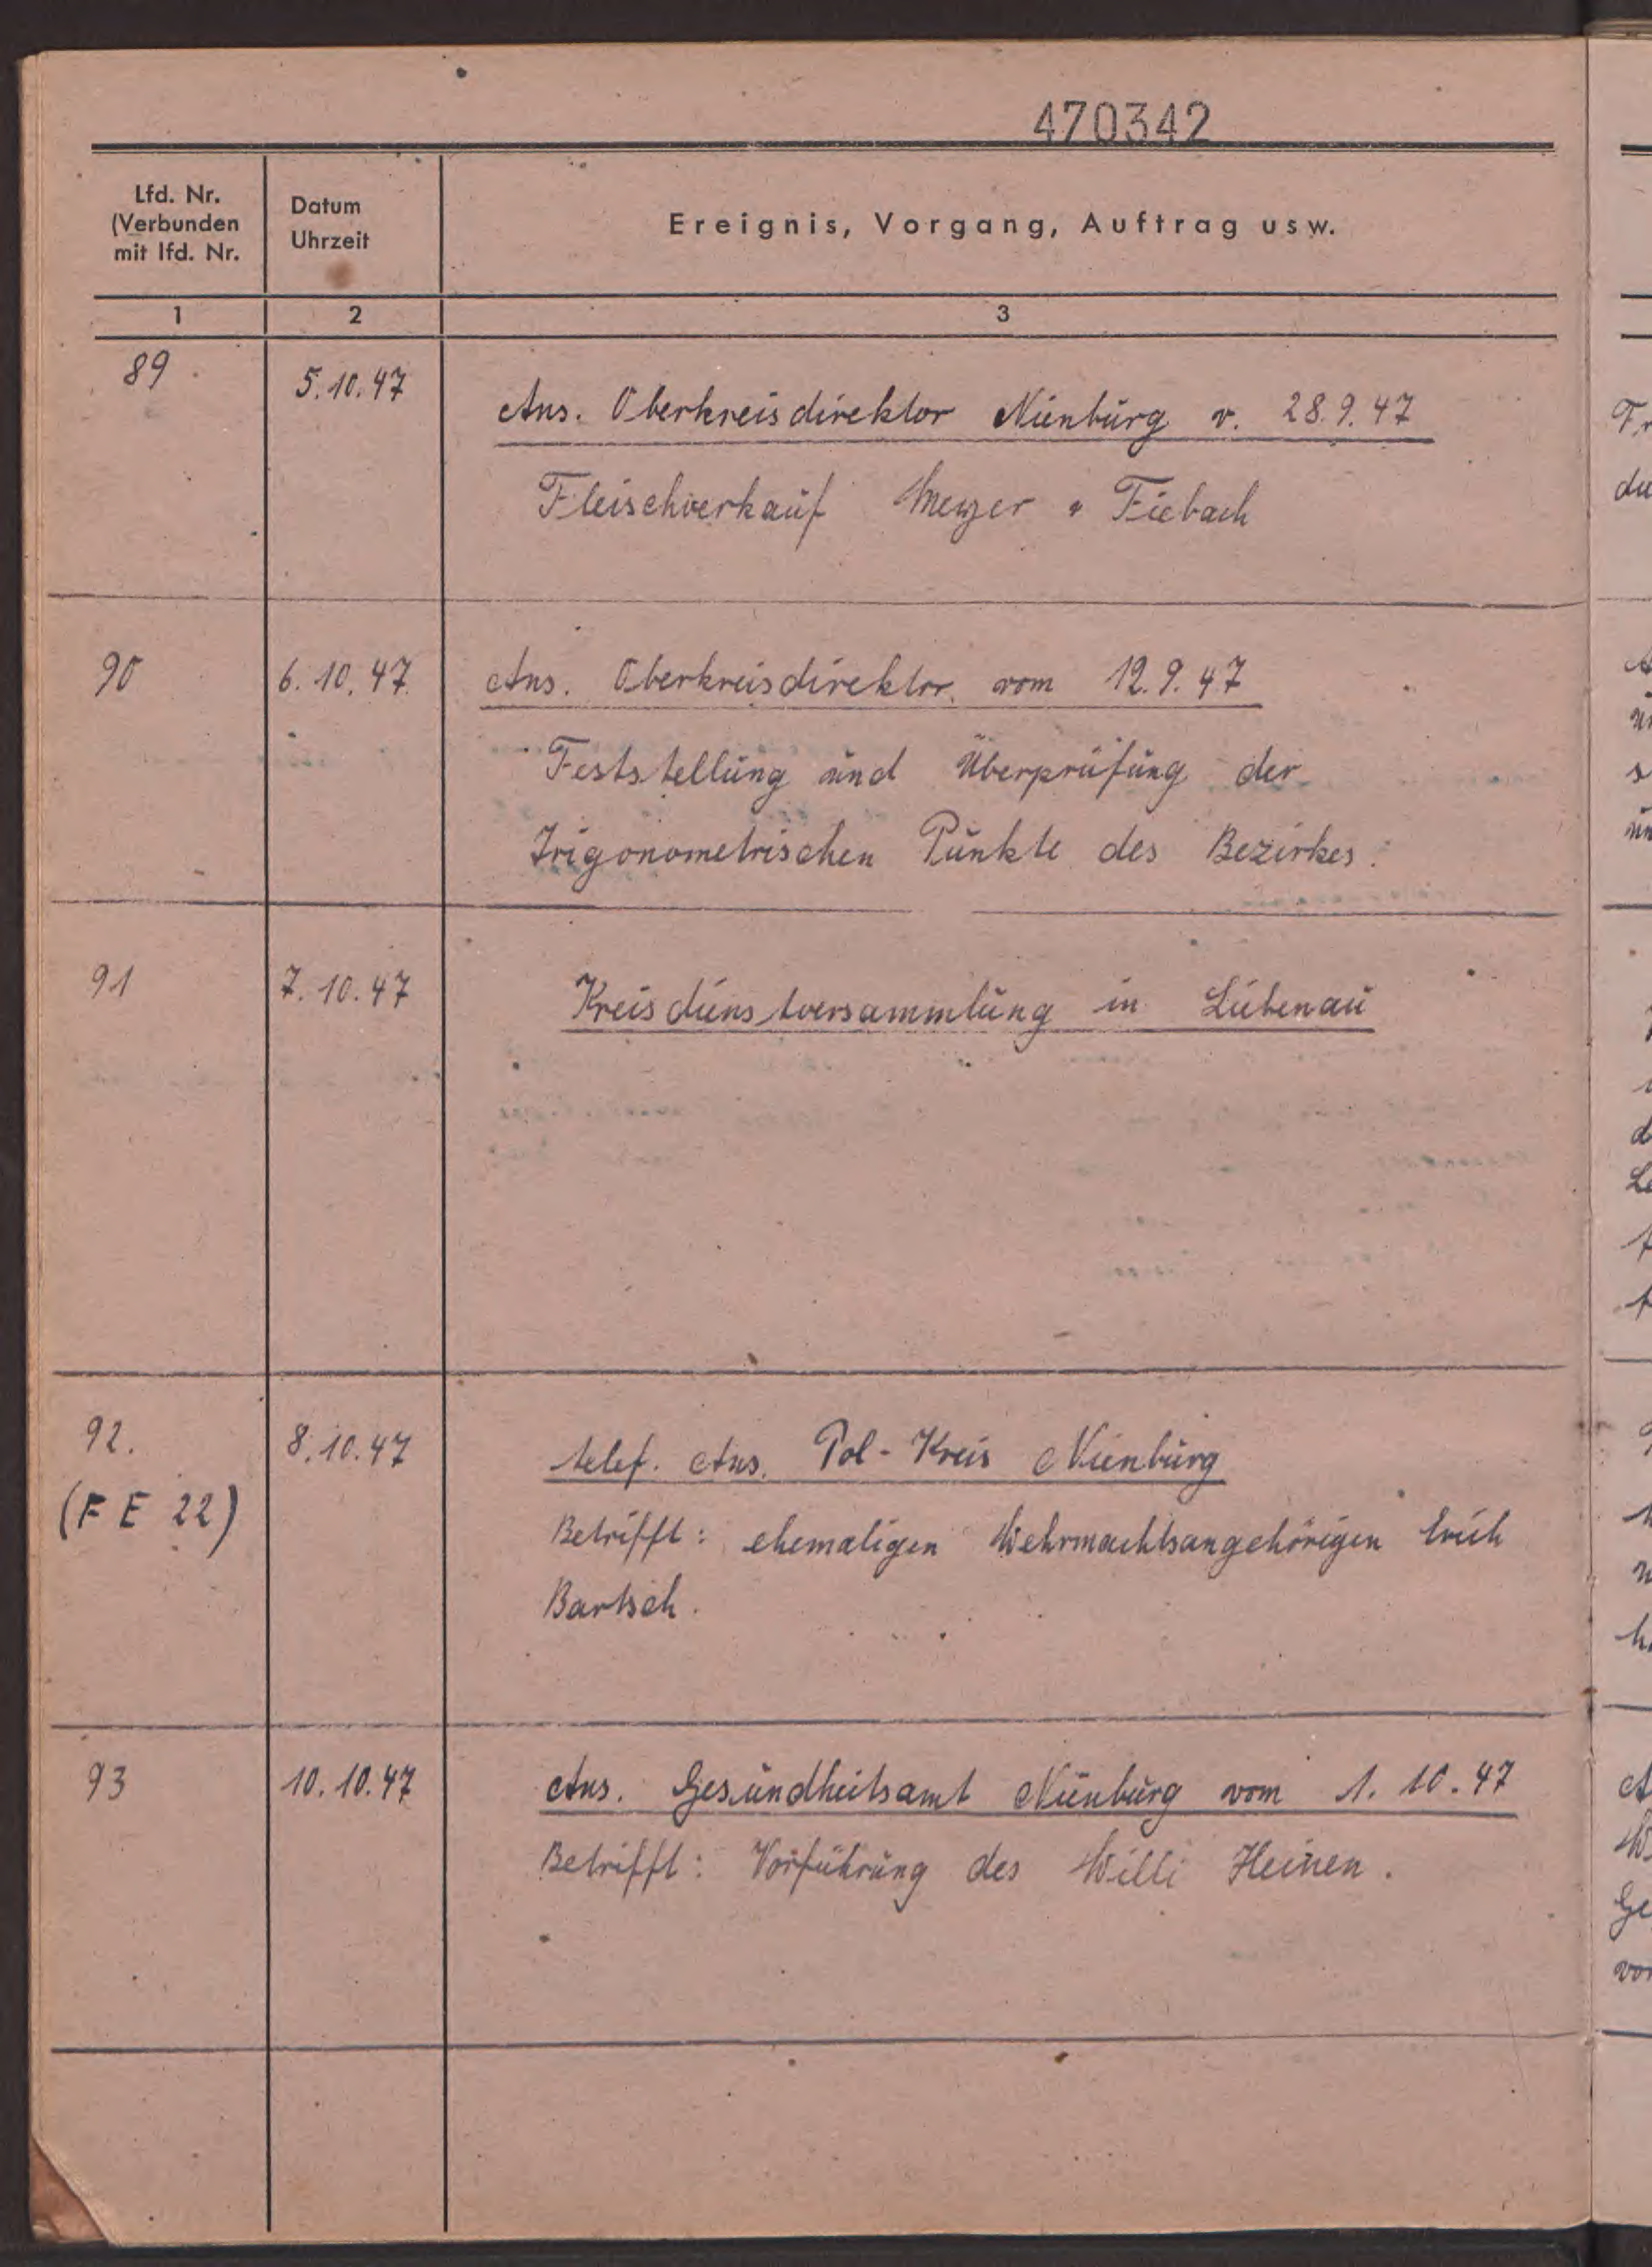 470342
Lfd. Nr.
(Verbunden
mit lfd. Nr.
Datum
Uhrzeit
Ereignis, Vorgang, Auftrag usw.
1 2 3
89 5.10.47 Ans. Oberkreisdirektor Nienburg v. 28.9.47
Fleischverkauf Meyer Fiebach
90 6.10.47 Ans. Oberkreisdirektor vom 12.9.47
Feststellung und Überprüfung der
Trigonometrischen Punkte des Bezirkes.
91 7.10.47 Kreisdienstversammlung in Liebenau
92. 8.10.47 telef. Ans. Pol-Kreis Nienburg
(F E 22) Betrifft: ehemaligen Wehrmachtsangehörigen Erich
Bartsch.
93 10.10.47 Ans. Gesundheitsamt Nienburg vom 1.10.47
Betrifft: Vorführung des Willi Heinen.